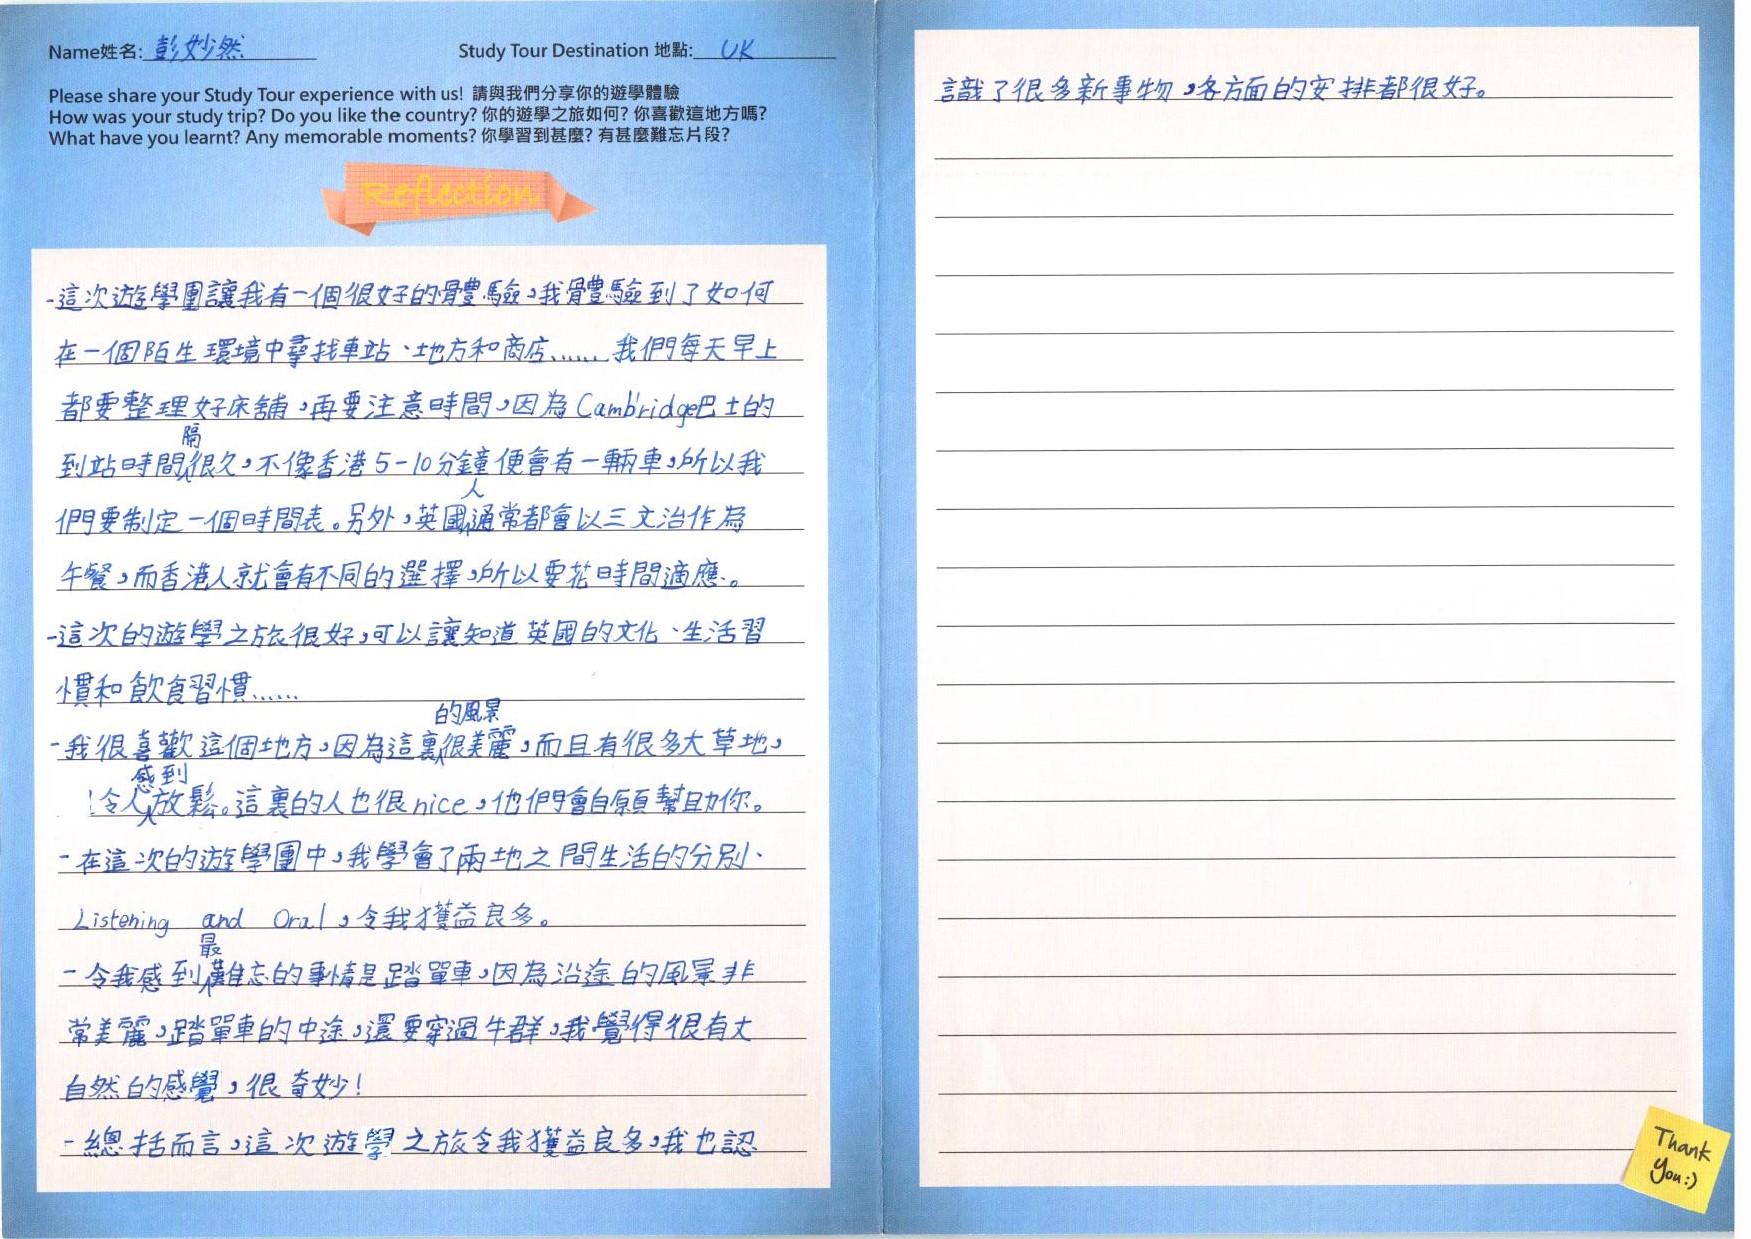 Name姓名: 彭妙然 Study Tour Destination 地點: UK
Please share your Study Tour experience with us! 請與我們分享你的遊學體驗
How was your study trip? Do you like the country? 你的遊學之旅如何? 你喜歡這地方嗎?
What have you learnt? Any memorable moments? 你學習到甚麼? 有甚麼難忘片段?
Reflection
-這次遊學團讓我有一個很好的體驗,我體驗到了如何
在一個陌生環境中尋找車站、地方和商店...... 我們每天早上
都要整理好床舖,再要注意時間,因為Cambridge巴士的
到站時間隔很久,不像香港5-10分鐘便會有一輛車,所以我
們要制定一個時間表。另外,英國人通常都會以三文治作為
午餐,而香港人就會有不同的選擇,所以要花時間適應。
-這次的遊學之旅很好,可以讓知道英國的文化、生活習
慣和飲食習慣......
-我很喜歡這個地方,因為這裏的風景很美麗,而且有很多大草地,
令人感到放鬆。這裏的人也很nice,他們會自願幫助你。
-在這次的遊學團中,我學會了兩地之間生活的分別、
Listening and Oral,令我獲益良多。
-令我感到最難忘的事情是踏單車,因為沿途的風景非
常美麗,踏單車的中途,還要穿過牛群,我覺得很有大
自然的感覺,很奇妙!
-總括而言,這次遊學之旅令我獲益良多,我也認
識了很多新事物,各方面的安排都很好。
Thank
you:)